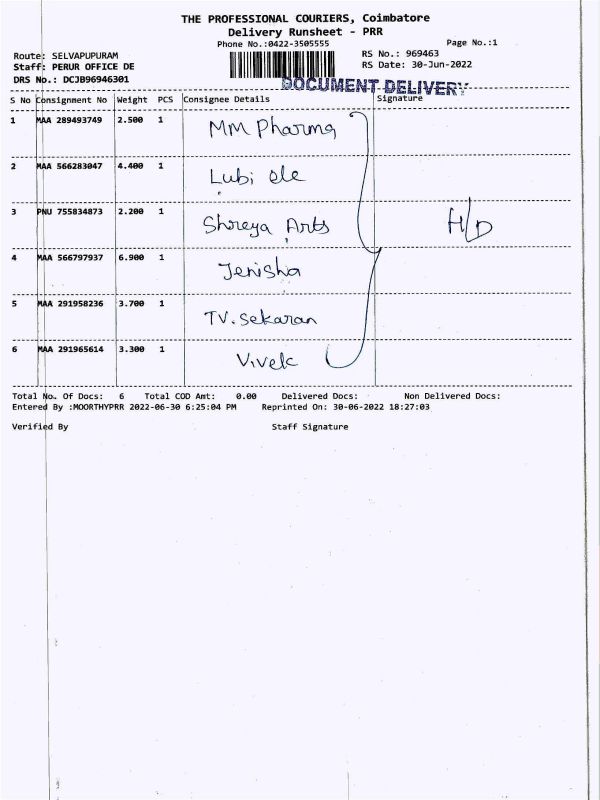 THE PROFESSIONAL COURIERS, Coimbatore
Delivery Runsheet - PRR
Phone No.:0422-3505555 Page No.:1
Route: SELVAPUPURAM RS No.: 969463
Staff: PERUR OFFICE DE RS Date: 30-Jun-2022
DRS No.: DCJB96946301
DOCUMENT DELIVERY
S No Consignment No Weight PCS Consignee Details Signature
1 MAA 289493749 2.500 1 MM Pharma
2 MAA 566283047 4.400 1 Lubi ele
3 PNU 755834873 2.200 1 Shreya Arts H/D
4 MAA 566797937 6.900 1 Jenisha
5 MAA 291958236 3.700 1 TV. Sekaran
6 MAA 291965614 3.300 1 Vivek
Total No. Of Docs: 6 Total COD Amt: 0.00 Delivered Docs: Non Delivered Docs:
Entered By :MOORTHYPRR 2022-06-30 6:25:04 PM Reprinted On: 30-06-2022 18:27:03
Verified By Staff Signature